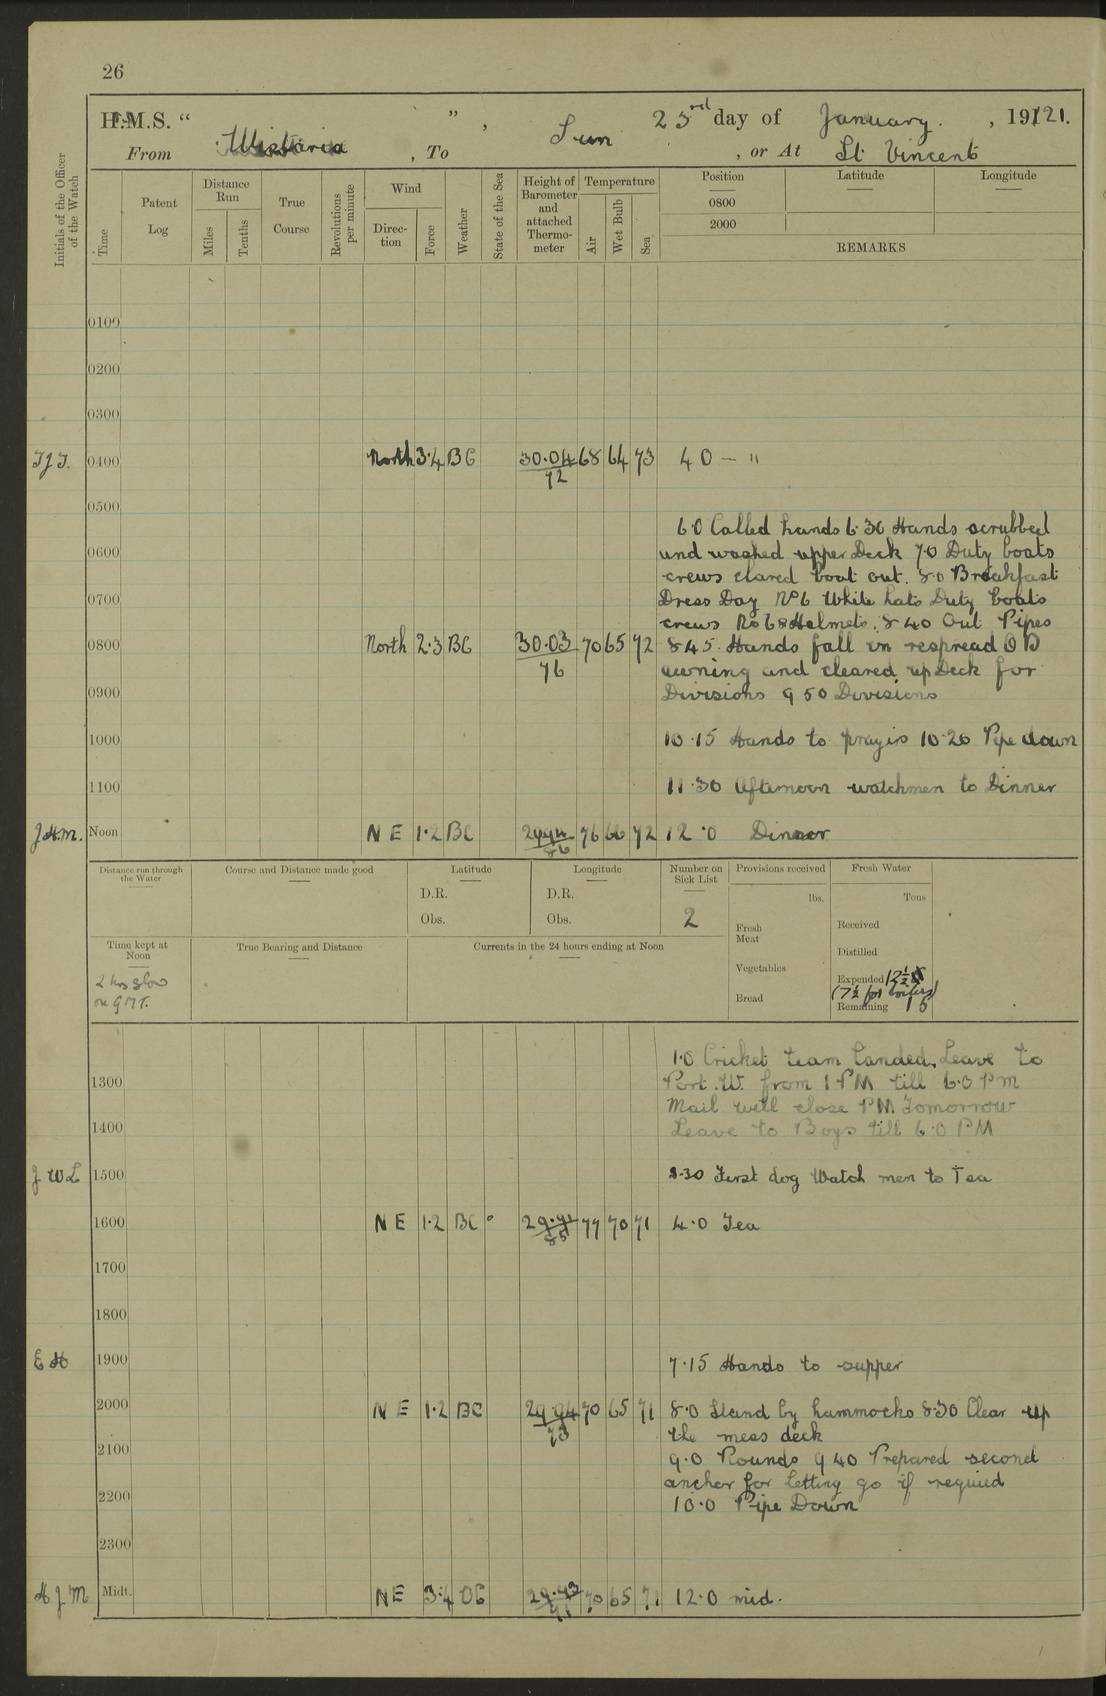 26
H.M.S. “ Wistaria ” , Sun 23rd day of January. , 19121.
From , To , or At St. Vincent
Initials of the Officer of the Watch
Time
Patent Log
Distance Run
Miles
Tenths
True Course
Revolutions per minute
Wind
Direc-tion
Force
Weather
State of the Sea
Height of Barometer and attached Thermo-meter
Temperature
Air
Wet Bulb
Sea
Position
Latitude
Longitude
0800
2000
REMARKS
0100
0200
0300
0400 North 3·4 BC 30·04 72 68 64 73 4 0 — "
0500
6·0 Called hands 6·30 Hands scrubbed
0600 and washed upper Deck 7·0 Duty boats
crews clared boat out. 8·0 Breakfast
0700 Dress Day No 6 White hats Duty boats
crews No 6 & Helmets. 8 40 Out Pipes
0800 North 2·3 BC 30·03 76 70 65 72 8 45 Hands fall in respread QD
awning and cleared up Deck for
0900 Divisions 9 50 Divisions
1000 10·15 Hands to prayirs 10·20 Pipe down
1100 11·30 Afternoon watchmen to Dinner
J.H.M. Noon N E 1·2 BC 2994 86 76 66 72 12·0 Dinner
Distance run through the Water
Course and Distance made good
Latitude
D.R.
Obs.
Longitude
D.R.
Obs.
Number on Sick List
2
Provisions received
lbs.
Fresh Meat
Vegetables
Bread
Fresh Water
Tons
Received
Distilled
Expended 12½
(7½ for boilers)
Remaining 15
Time kept at Noon
2 hrs slow
on G.M.T.
True Bearing and Distance
Currents in the 24 hours ending at Noon
1·0 Cricket team Landed, Leave to
1300 Port. W. from 1 PM till 6·0 Pm
Mail will close PM Tomorrow
1400 Leave to Boys till 6·0 PM
J W L 1500 3·30 First dog Watch men to Tea
1600 N E 1·2 BC 29·91 85 77 70 71 4·0 Tea
1700
1800
E H 1900 7·15 Hands to supper
2000 N E 1·2 BC 29·94 73 70 65 71 8·0 Stand by hammocks 8·30 Clear up
the mess deck
2100 9·0 Rounds 9 40 Prepared second
anchor for letting go if requiud
2200 10·0 Pipe Down
2300
H J M Midt. N E 3·4 BC 29·93 71 70 65 71 12·0 mid.